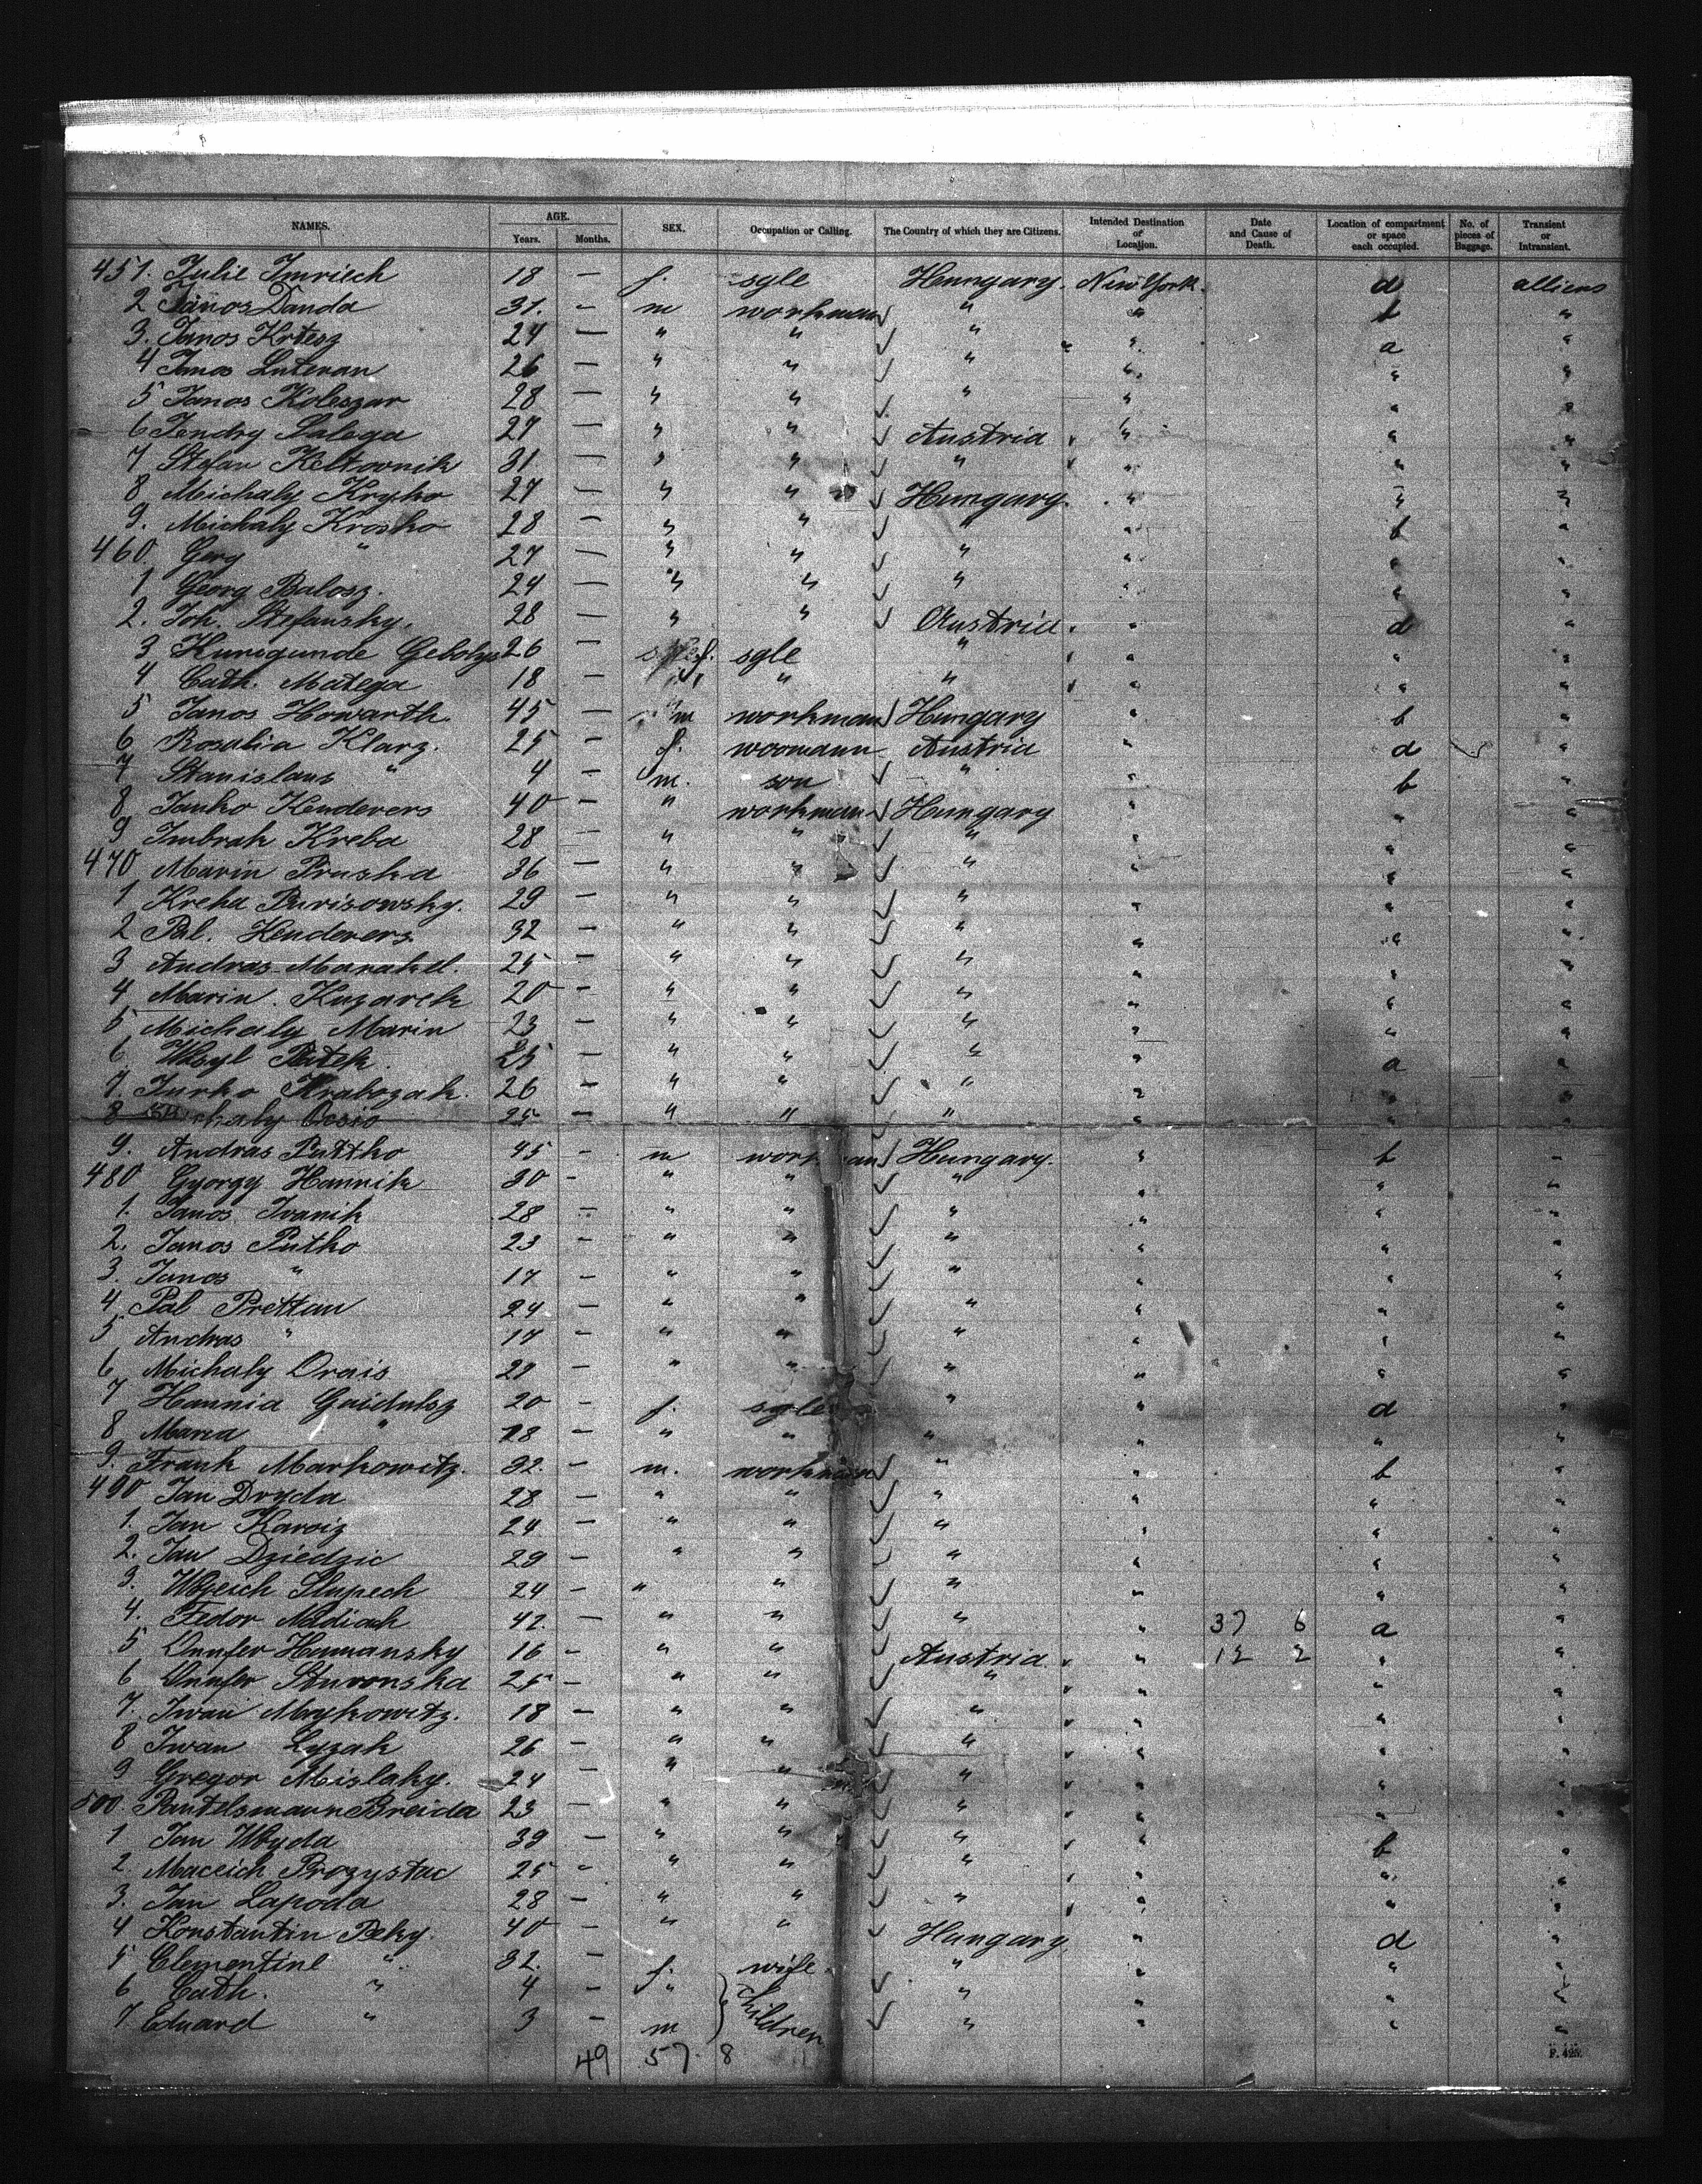 NAMES. AGE. Years. Months. SEX. Occupation or Calling. The Country of which they are Citizens. Intended Destination or Location. Date and Cause of Death. Location of compartment or space each occupied. No. of pieces of Baggage. Transient or Intransient.
451. Julie Imriech 18 — f. sgle Hungary. New York. d
2 Janos Danda 31. — m workman " " b "
3. Janos Krtesz 24 — " " " " a "
4 Janos Luteran 26 — " " " " " "
5 Janos Koleszar 28 — " " " " " "
6 Jendry Salega 27 — " " Austria " " "
7 Stefan Keltovnik 31. — " " " " " "
8 Michaly Kryko 27 — " " Hungary. " " "
9. Michaly Krosko 28 — " " " " b "
460 Gerg " 27 — " " " " " "
1 Georg Balosz. 24 — " " " " " "
2. Joh. Stefansky. 28 — " " Austria. " d "
3 Kunegunde Gebolys 26 — f. sgle " " " "
4 Cath. Matega 18 — " " " " "
5 Janos Howarth. 45 — m workman Hungary " b "
6 Rosalia Klarz. 25 — f. woomann Austria " d "
7 Stanislaus " 4 — m. son " " b "
8 Janko Kenderers 40 — " workman Hungary " " "
9 Imbrah Kreba 28 — " " " " " "
470 Marin Pruska 36 — " " " " " "
1 Kreha Purisowsky. 29 — " " " " " "
2 Pal. Henderers 32 — " " " " " "
3 Andras Marakel. 25 — " " " " " "
4 Marin. Kuzarek 20 — " " " " " "
5 Michaly Marin 23 — " " " " " "
6 Wasyl Patek. 25 — " " " " a "
7. Jurko Hrabozak. 26 — " " " " " "
8 25 — " " " " " "
9. Andras Puttko 45 — m workman Hungary. " b "
480 Gyorgy Hannik 30 — " " " " " "
1. Janos Ivanik 28 — " " " " " "
2. Janos Putko 23 — " " " " " "
3. Janos " 17 — " " " " " "
4 Pal Prettan 24 — " " " " " "
5 Andras " 17 — " " " " " "
6 Michaly Orais — " " " " " "
7 Hannia Gaidulsz 20 — f. sgle " " d "
8 Maria " 18 — " " " " " "
9. Frank Markowitz. 32. — m. workman " " b "
490 Jan Dryda 28 — " " " " " "
1. Jan Karoiz 24 — " " " " " "
2. Jan Dziedzic 29 — " " " " " "
3. Slupech 24 — " " " " " "
4. Fedor Nadiak 42. — " " " " 37 6 a "
5 Onufer Humansky 16 — " " Austria. " 12 2 " "
6 Onufer Sturonska 25 — " " " " " "
7. Iwan Mrykowitz. 18 — " " " " " "
8 Iwan Lyzak 26 — " " " " " "
9 Gregor Mislaky. 24 — " " " " " "
500. Pantelsmann Breida 23 — " " " " " "
1 Jan Wbyda 39 — " " " " b "
2. Maceich Prozystac 25 — " " " " " "
3. Jan Lapoda 28 — " " " " " "
4 Konstantin Peky. 40 — " " Hungary " d "
5 Clementine " 32. — f. wife. " " " "
6 Cath. " 4 — " children " " " "
7 Eduard " 3 — m " " " "
49 57. 8